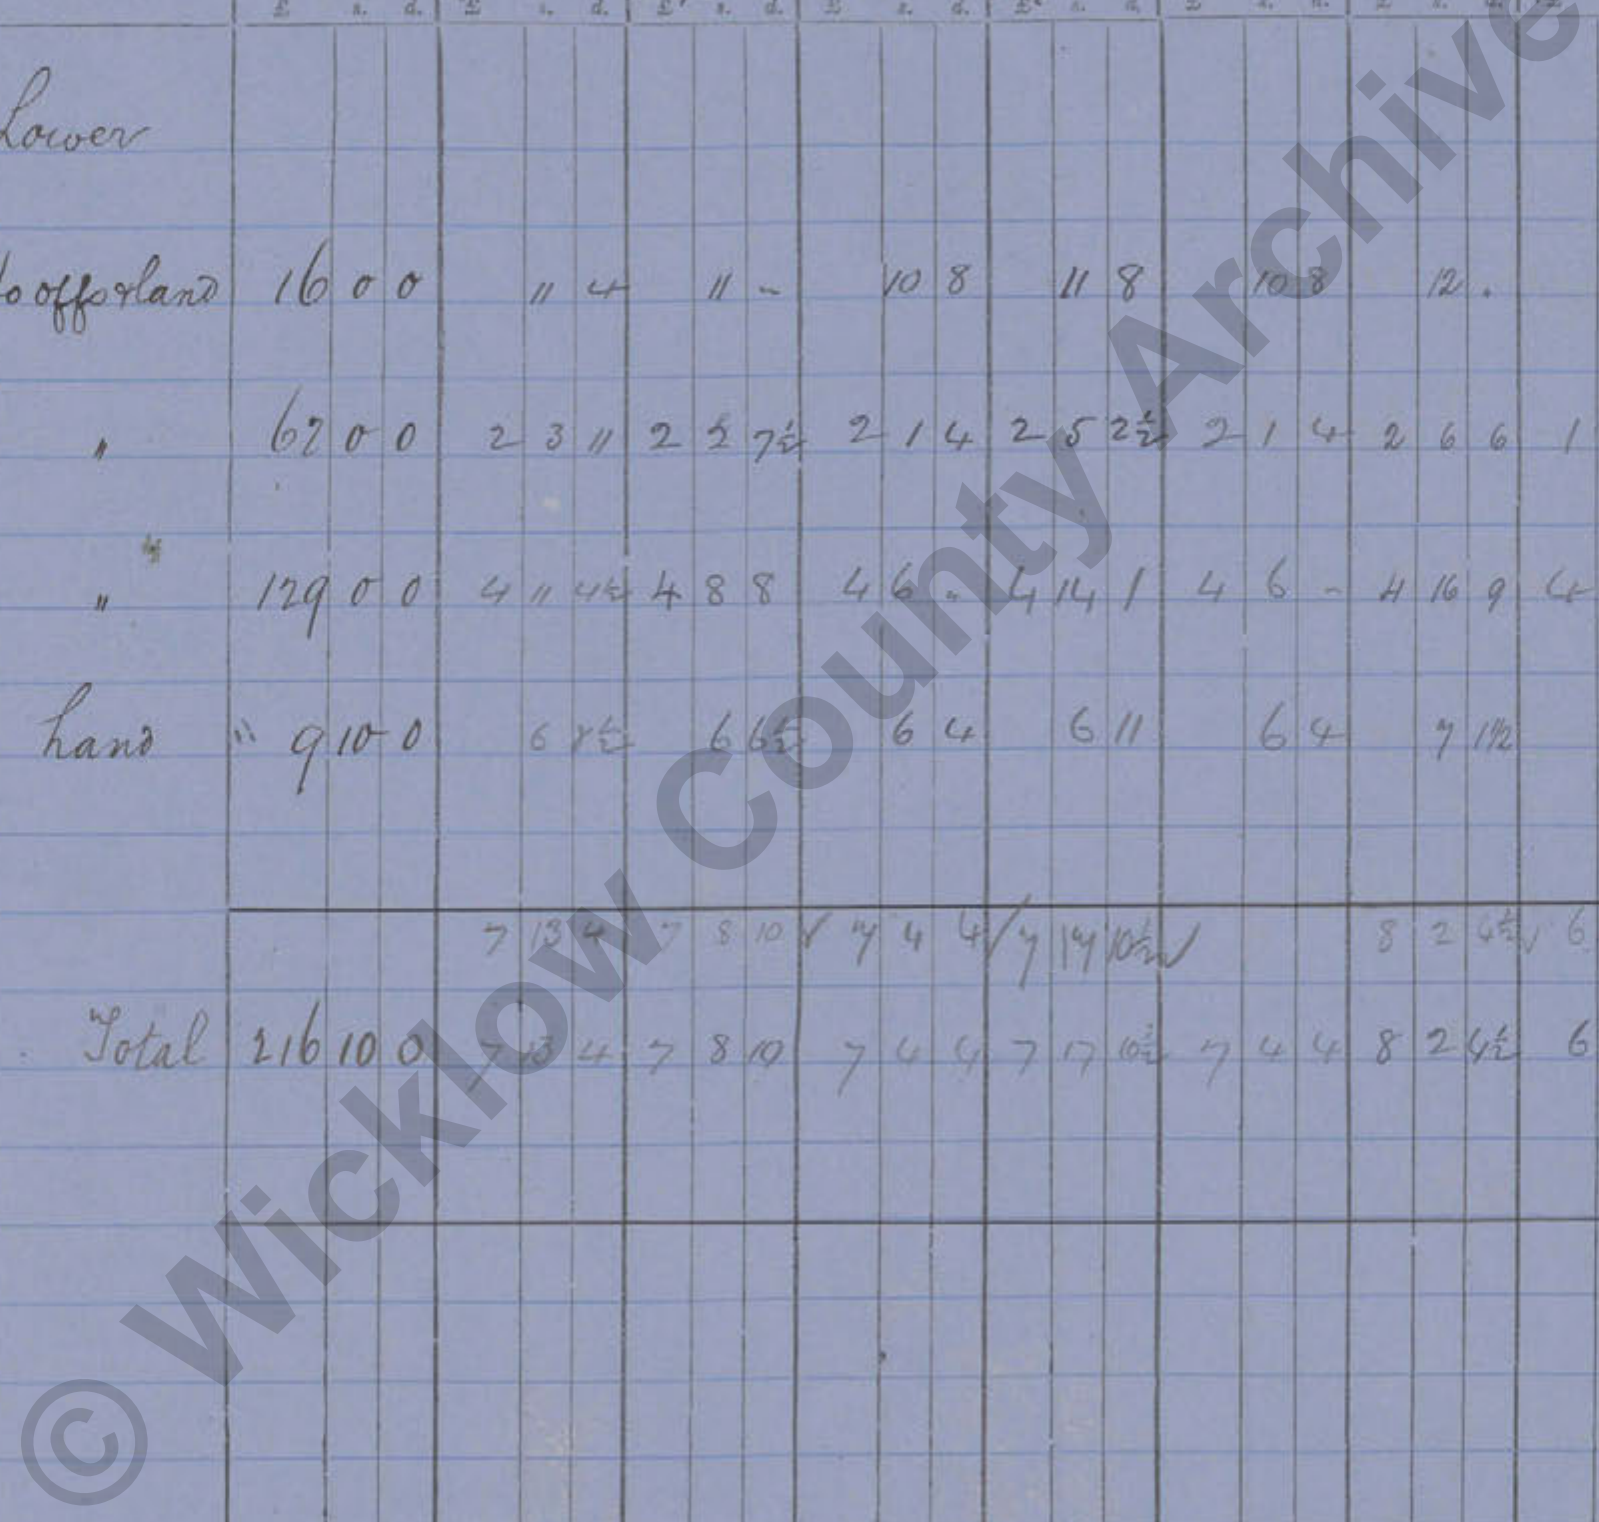 £ s. d. £ s. d. £ s. d. £ s. d. £ s. d. £ s. d. £ s. d.
Lower
offorland 16 0 0 11 4 11 - 10 8 11 8 10 8 12 .
" 62 0 0 2 3 11 2 2 7½ 2 1 4 2 5 2½ 2 1 4 2 6 6 1
" 129 0 0 4 11 4½ 4 8 8 4 6 - 4 14 1 4 6 - 4 16 9 4
Land " 9 10 0 6 8½ 6 6½ 6 4 6 11 6 4 7 1½
7 13 4 7 8 10 ✓ 7 4 4 ✓ 7 17 10½ ✓ 8 2 4½ ✓ 6
Total 216 10 0 7 13 4 7 8 10 7 4 4 7 17 10½ 7 4 4 8 2 4½ 6
© Wicklow County Archive